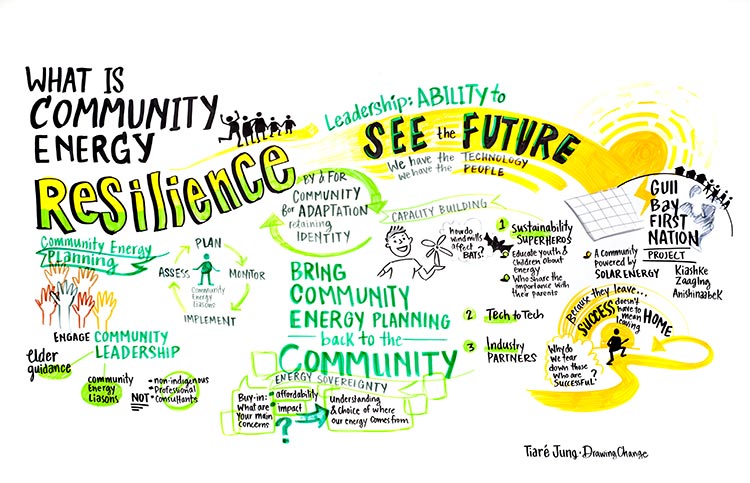 WHAT IS
COMMUNITY
ENERGY
Resilience
Leadership: ABILITY to
SEE the FUTURE
We have the TECHNOLOGY
We have the PEOPLE
BY & FOR
COMMUNITY
for ADAPTATION
retaining
IDENTITY
Community Energy
Planning
PLAN
ASSESS
MONITOR
IMPLEMENT
Community
Energy
Liasons
ENGAGE COMMUNITY
LEADERSHIP
elder
guidance
community
Energy
Liasons
NOT
• non-indigenous
• Professional
Consultants
BRING
COMMUNITY
ENERGY PLANNING
back to the
COMMUNITY
ENERGY SOVEREIGNTY
Buy-in:
What are
your main
concerns
• affordability
• impact
?
Understanding
& choice of where
our energy comes from
CAPACITY BUILDING
how do
windmills
affect
BATS?
1 Sustainability
SUPERHEROS
Educate youth &
children about
energy
Who share the
importance with
their parents
2 Tech to Tech
3 Industry
PARTNERS
GUll
BAY
FIRST
NATION
PROJECT
Kiashke
Zaaging
Anishinaabek
A community
powered by
SOLAR ENERGY
Because they leave...
SUCCESS doesn't
have to
mean
leaving
HOME
Why do
we tear
down those
who are
SUCCESSFUL?
Tiaré Jung · Drawing Change